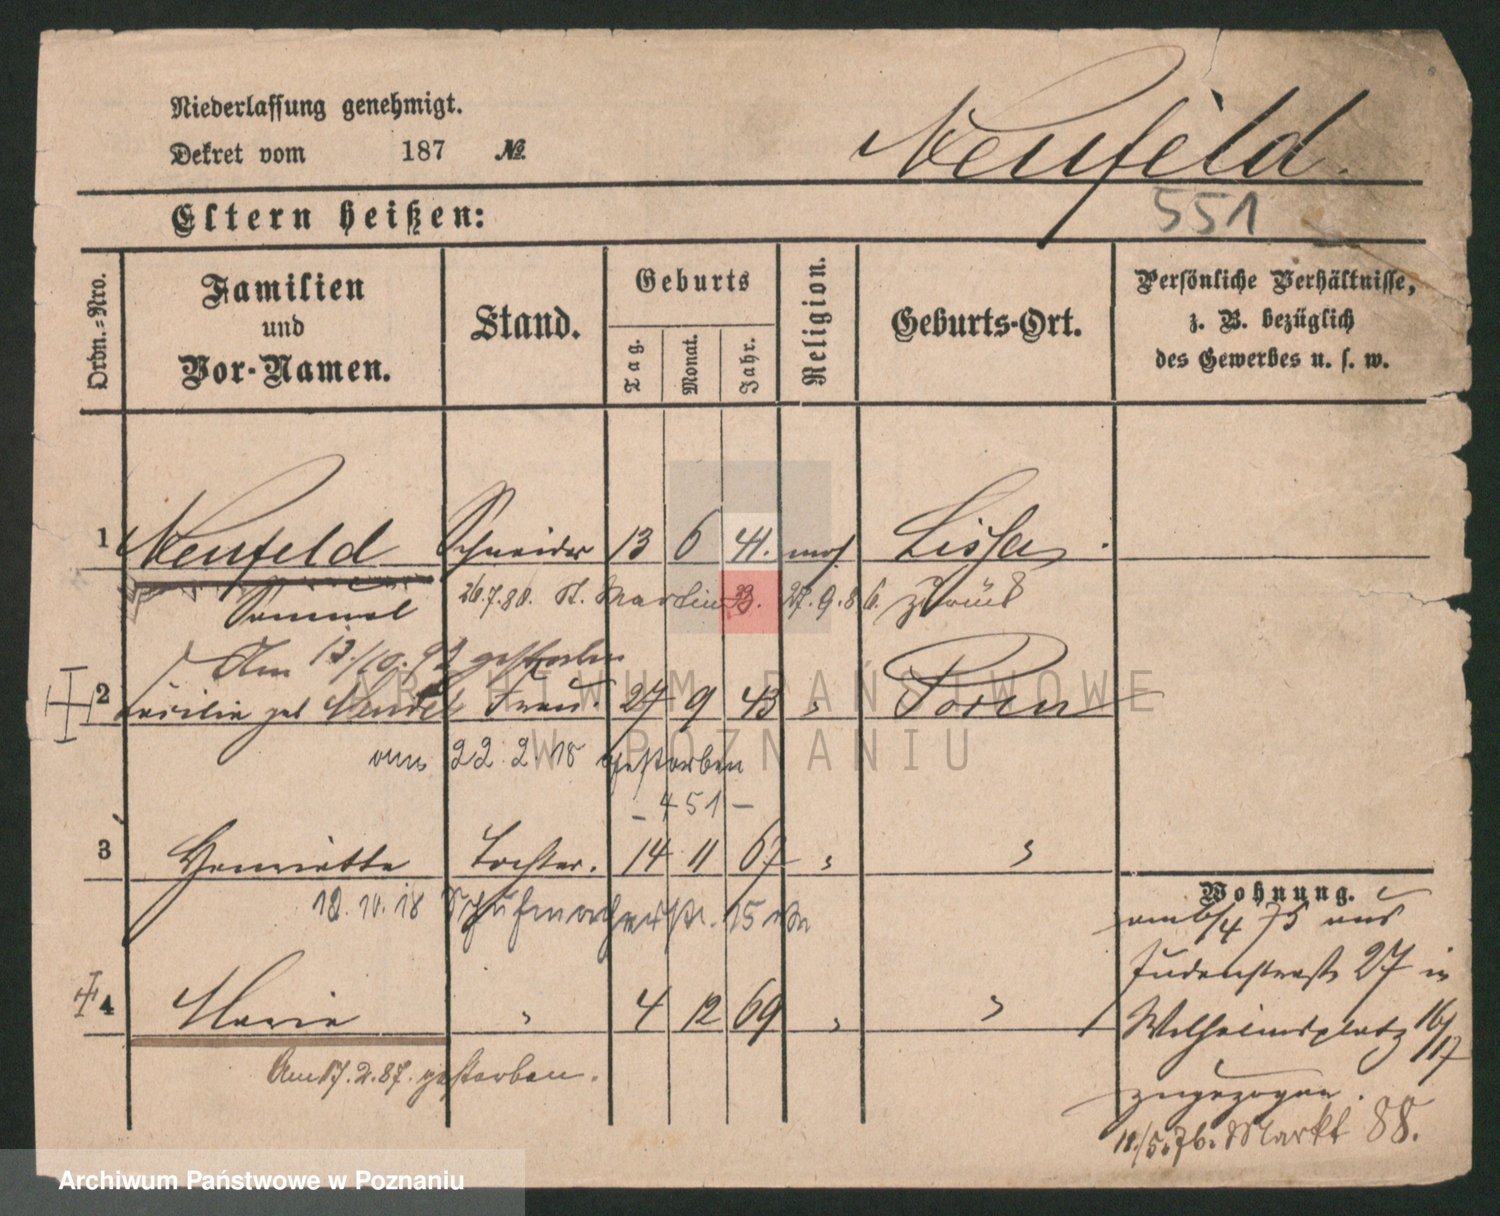 Niederlassung genehmigt.
Dekret vom 187 №.
Neufeld.
551
Eltern heißen:
Ordn.=Nro.
Familien
und
Vor-Namen.
Stand.
Geburts
Tag.
Monat.
Jahr.
Religion.
Geburts-Ort.
Persönliche Verhältnisse,
z. B. bezüglich
des Gewerbes u. s. w.
1 Neufeld Schneider 13 6 41. mos Lissa.
Samuel 26.7.80. St. Martin 33. 27.9.86. zurück
Am 13/10.92 gestorben
2 Cäcilie geb Mendel Frau. 27 9 43 " Posen
am 22.2.18 gestorben
- 451 -
3 Henriette Tochter. 14 11 67 " "
12.10.18 Schuhmacherstr. 15
4 Marie " 4 12 69 " "
Am 17.2.87. gestorben.
Wohnung.
am 6/4 75 aus
Judenstraße 27 in
Wilhelmsplatz 16/17
zugezogen.
18./5.76. Markt 88.
ARCHIWUM PAŃSTWOWE
W POZNANIU
Archiwum Państwowe w Poznaniu